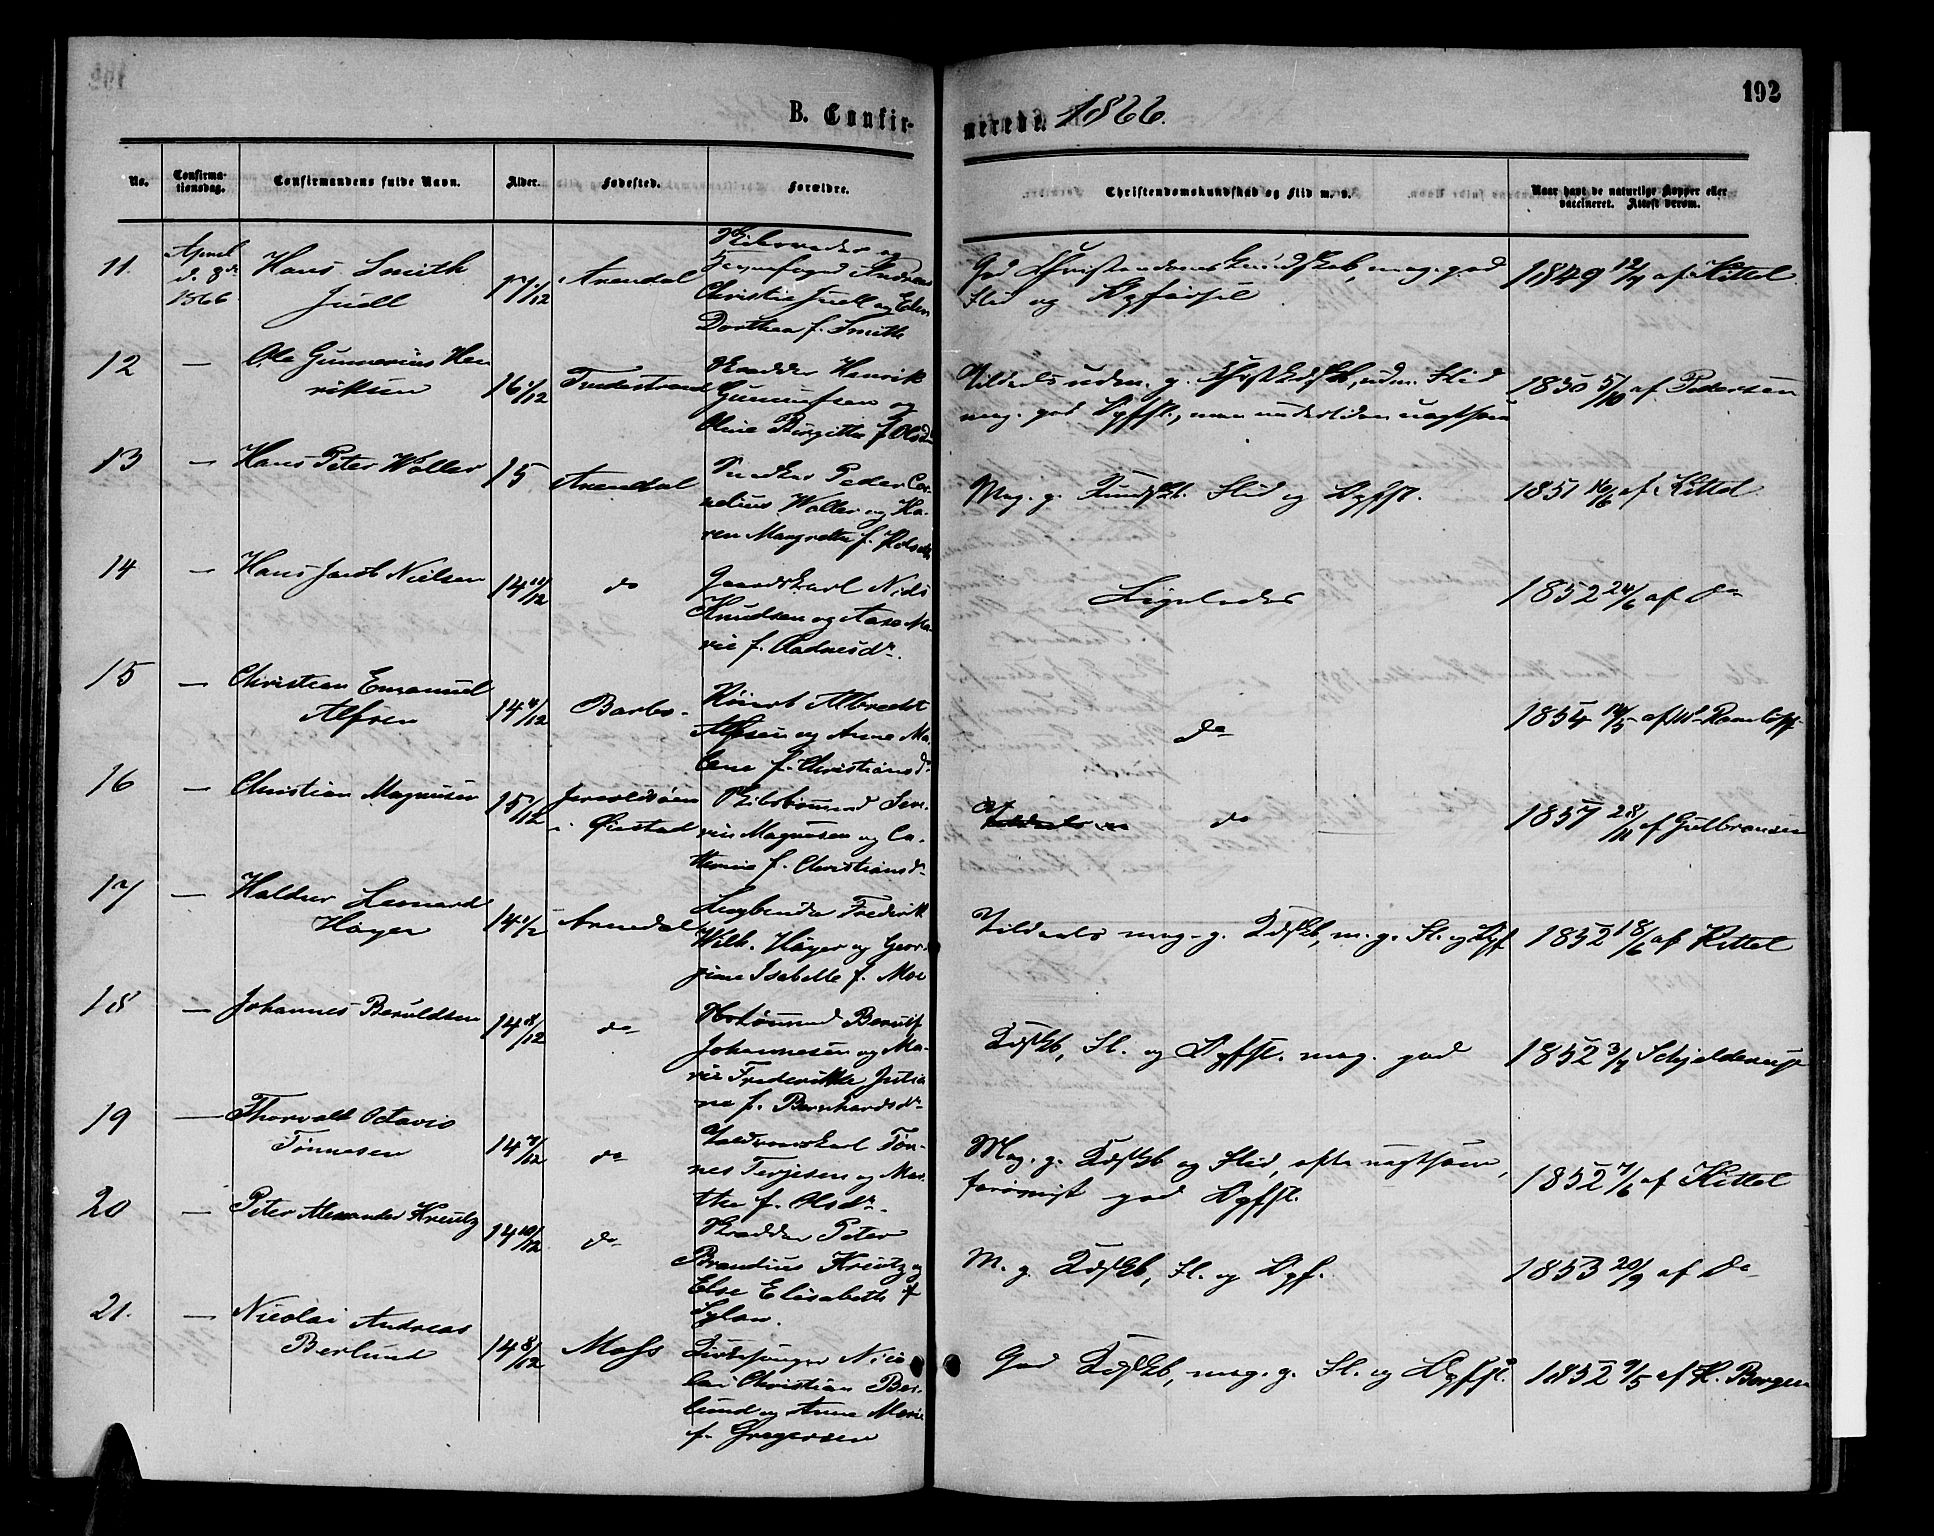 192
B. Confir-
merede. 1866.
No.
Confirma-
tionsdag.
Confirmandens fulde Navn.
Alder.
Fødested.
Forældre.
Christendomskundskab og Flid m. v.
Naar havt de naturlige Kopper eller
vaccineret. Attest derom.
11.
April
d. 8de
1866
Hans Smith
Juell
17 1/12
Arendal
og
Andreas
Christie Juell og Elen
Dorthea f. Smith
God Christendomskundskab, meg. god
Flid og Opførsel
1849 12/7 af Kittel
12
—
Ole Gunnerius Hen
riksen
16 1/12
Tvedestrand
Henrik
Gunnufsen og
Oline Birgitte f. Olsdr
Tildeels udm. g. Kdskb, udm. Flid
meg. god Opfsl., men undertiden uagtsom
1850 5/10 af Pedersen
13
—
Hans Peter Woller
15
Arendal
Snedker Peder Cor-
nelius Woller og Ka-
ren Margrethe f.
Meg. g. Kundskb. Flid og Opfsl.
1851 16/6 af Kittel
14
—
Hans Jacob Nielsen
14 11/12
do
Gaardskarl Niels
Knudsen og Aase Ma-
rie f. Aadnesdr.
Ligeledes
1852 24/6 af do
15
—
Christian Emanuel
Alfsen
14 4/12
Barbo.
Albrecht
Alfsen og Anne Ma-
lene f. Christiansdr
do
1854 14/5 af W. Ramløff
16
—
Christian Magnusen
15 7/12
Jerosldsøen
i Øiestad
Skibstømmermd Sev-
rin Magnusen og Ca-
thrine f. Christiansdr
do
1857 28/11 af Gulbransen
17
—
Haldur Leonard
Høyer
14 1/2
Arendal
Bogbinder Frederik
Wilh. Høyer og Geor-
gine Isabelle f. Moe
Tildeels meg. g. Kdskb, m. g. Fl. og Opf
1852 18/6 af Kittel
18
—
Johannes Beruldsen
14 8/12
do
Berulf
Johannesen og Ma-
rie Frederikke Julia-
ne f. Bernhardsdr
Kdskb, Fl. og Opfsl. meg. god
1852 3/7 Schjelderup
19
—
Thorvald Octavio
Tønnesen
14 7/12
do
Tøn-
nes Terjesen og Mar-
the f. Olsdr.
Meg. g. Kdskb og Flid, ofte uagtsom,
forøvrigt god Opfsl.
1852 7/6 af Kittel
20
—
Peter Alexander Kreutz
14 10/12
do
Peter
Brandius Kreutz og
Else Elisabeth f
Sylow.
M. g. Kdskb, Fl. og Opf.
1853 20/9 af do
21.
—
Nicolai Andreas
Berlund
14 8/12
Moss
Kirkesanger Nico
lai Christian Ber-
lund og Anne Marie
f. Gregersen
God Kdskb, meg. g. Fl. og Opfsl.
1852 9/5 af H. Borgen